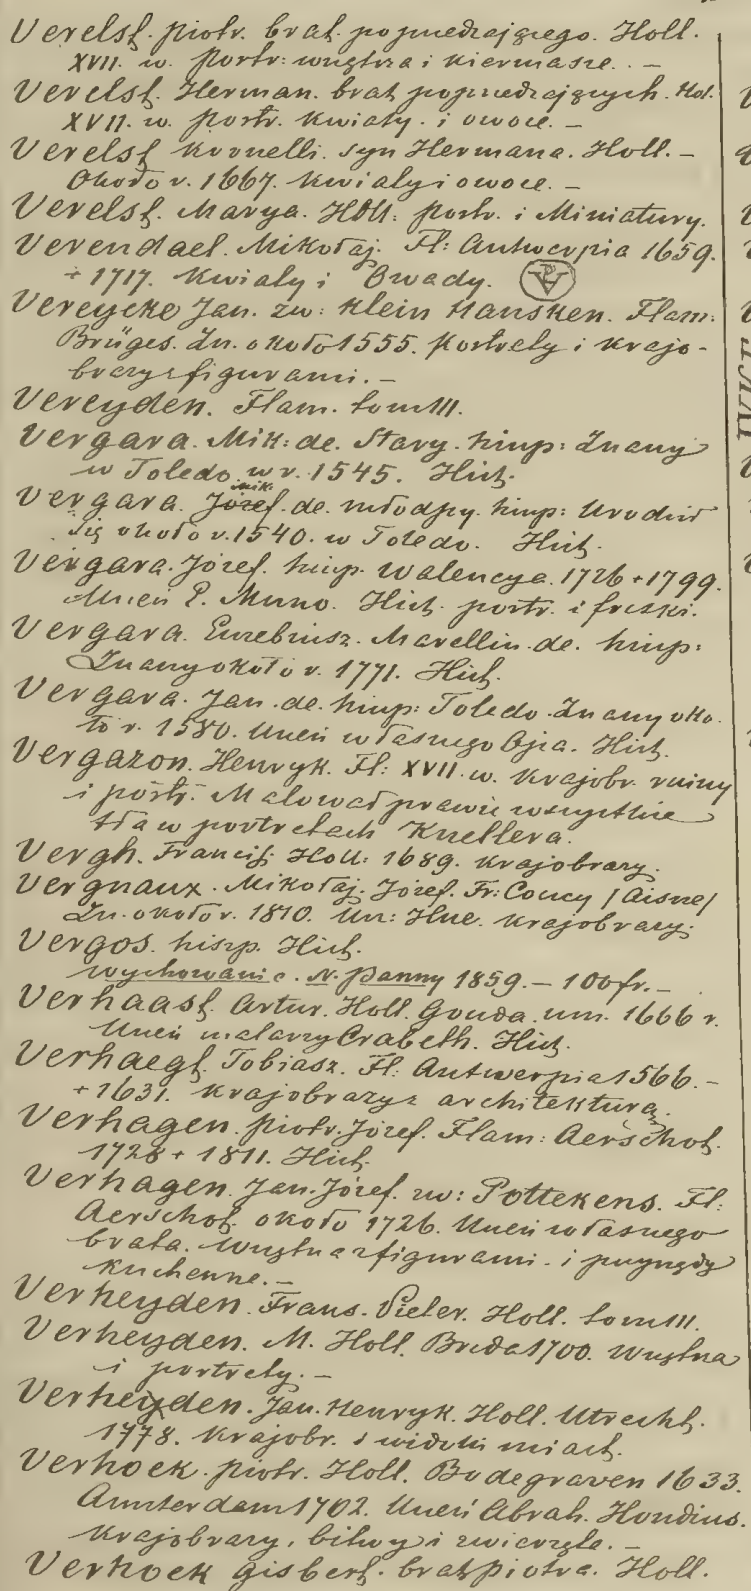 Verelst. Piotr. brat poprzedzającego. Holl.
XVII. w. Portr: wnętrza i kiermasze. –
Verelst. Herman. brat poprzedzających. Hol.
XVII. w. Portr. Kwiaty. i owoce. –
Verelst Kornelli. syn Hermana. Holl. –
Około r. 1667. Kwiaty i owoce. –
Verelst. Marya. Holl: Portr. i Miniatury.
Verendael. Mikołaj. Fl: Antwerpia 1659.
+ 1717. Kwiaty i Owady.
Vereycke Jan. zw: Klein Hansken. Flam:
Brüges. Zn. około 1555. Portrety i krajo-
brazy z figurami. –
Vereyden. Flam. tom III.
Vergara. Mik: de. Stary. hiszp: Znany
w Toledo w r. 1545. Hist.
Vergara. Józef. Mik. de. młodszy. hiszp: Urodził
się około r. 1540. w Toledo. Hist.
Vergara. Józef. hiszp. Walencya. 1726 + 1799.
Uczeń E. Muno. Hist. portr. i freski.
Vergara. Euzebiusz. Marellin. de. hiszp:
Znany około r. 1771. Hist.
Vergara. Jan. de. hiszp: Toledo. Znany oko.
ło r. 1580. Uczeń własnego Ojca. Hist.
Vergazon. Henryk. Fl: XVII. w. Krajobr. ruiny
i portr. Malował prawie wszystkie
tła w portretach Knellera.
Vergh. Francis. Holl: 1689. Krajobrazy.
Vergnaux. Mikołaj. Józef. Fr: Coucy /Aisne/
Zn. około r. 1810. Ucz: Hue. Krajobrazy.
Vergos. hiszp. Hist.
Wychowanie. N. Panny 1859. – 100 fr. –
Verhaast. Artur. Holl. Gouda. um. 1666 r.
Uczeń malarzy Crabeth. Hist.
Verhaegt. Tobiasz. Fl: Antwerpia 1566. –
+ 1631. Krajobrazy z architekturą.
Verhagen. Piotr. Józef. Flam: Aerschot.
1728 + 1811. Hist.
Verhagen. Jan. Józef. zw: Pottekens. Fl:
Aerschot. około 1726. Uczeń własnego
brata. Wnętrza z figurami. i przyrządy
kuchenne. –
Verheyden. Frans. Pieter. Holl. tom III.
Verheyden. M. Holl. Breda 1700. Wnętrza
i portrety. –
Verheyden. Jan. Henryk. Holl. Utrecht.
1778. Krajobr. i widoki miast.
Verhoek. Piotr. Holl. Bodegraven 1633.
Amsterdam 1702. Uczeń Abrah. Hondius.
Krajobrazy, bitwy i zwierzęta. –
Verhoek Gisbert. brat Piotra. Holl.